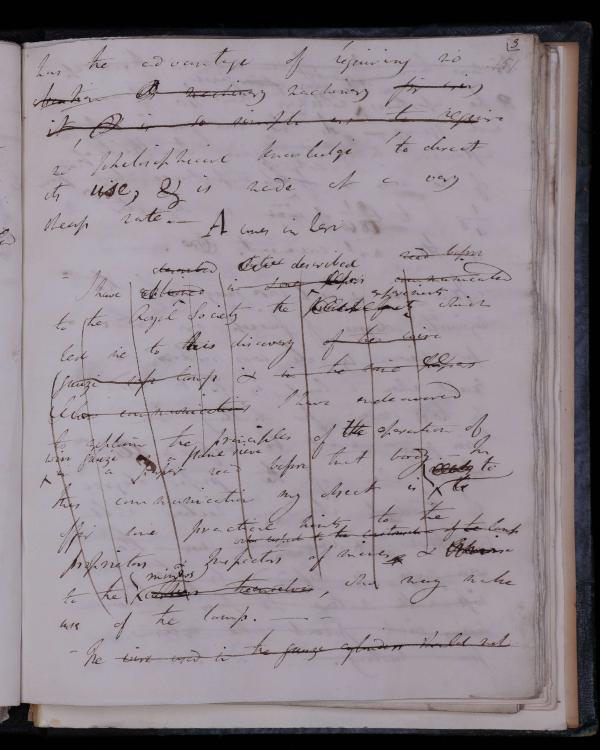 3
151
has the advantage of requiring no
machinery machinery for using
it & is so simple as to require
no philosophical knowledge to direct
its use, & is made at a very
cheap rate. — A
described described read before
I have in communicated
to the Royal Society the experiments which
led me to this discovery of the wire
gauze safe lamp & in the
communication I have endeavoured
to explain the principles of the operation of
wire gauze flame sieve
in a paper read before that body. In
this communication my object is to
offer some practical hints to the
of the lamp
proprietors & Inspectors of mines &
miners
to the themselves, who may make
use of the lamp. — —
The wire used in the gauze cylinders should not